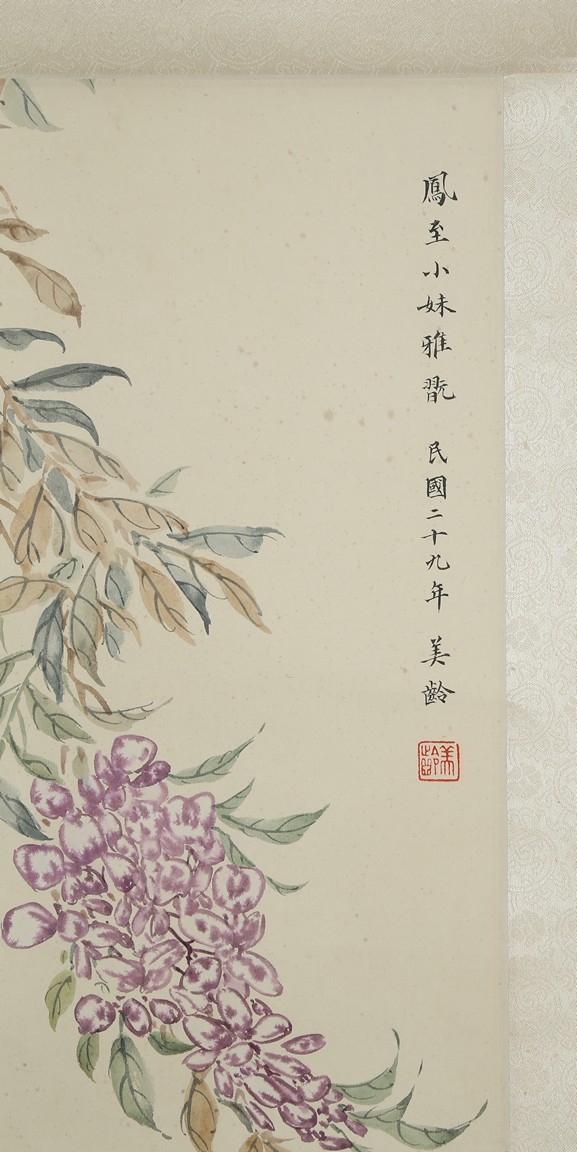 鳳至小妹雅翫 民國二十九年 美齡
美齡